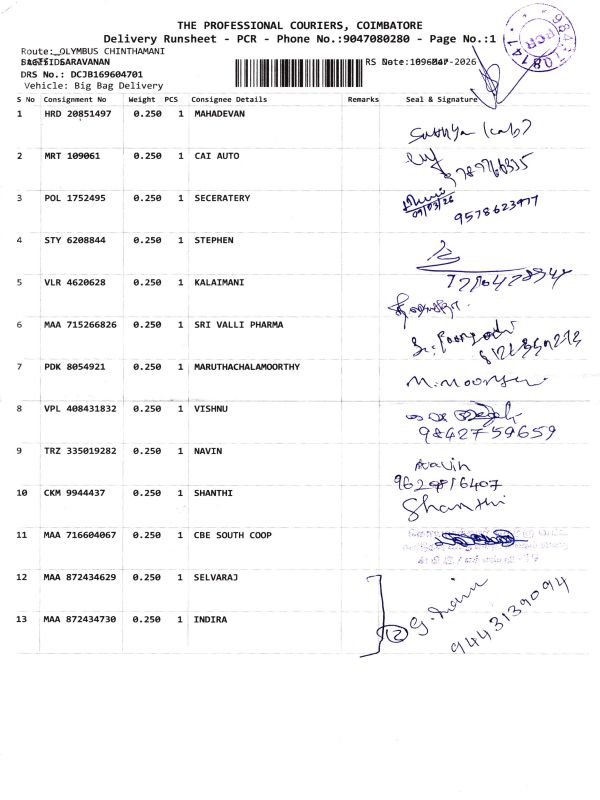 THE PROFESSIONAL COURIERS, COIMBATORE
Delivery Runsheet - PCR - Phone No.:9047080280 - Page No.:1
Route: OLYMBUS CHINTHAMANI
SARAVANAN
DRS No.: DCJB169604701
Vehicle: Big Bag Delivery
S No Consignment No Weight PCS Consignee Details Remarks Seal & Signature
1 HRD 20851497 0.250 1 MAHADEVAN
2 MRT 109061 0.250 1 CAI AUTO
3 POL 1752495 0.250 1 SECERATERY
09/03/26
9578623977
4 STY 6208844 0.250 1 STEPHEN
5 VLR 4620628 0.250 1 KALAIMANI
6 MAA 715266826 0.250 1 SRI VALLI PHARMA
7 PDK 8054921 0.250 1 MARUTHACHALAMOORTHY
8 VPL 408431832 0.250 1 VISHNU
9842759659
9 TRZ 335019282 0.250 1 NAVIN
Navin
9629816407
10 CKM 9944437 0.250 1 SHANTHI
Shanthi
11 MAA 716604067 0.250 1 CBE SOUTH COOP
12 MAA 872434629 0.250 1 SELVARAJ
13 MAA 872434730 0.250 1 INDIRA
2
9443139094